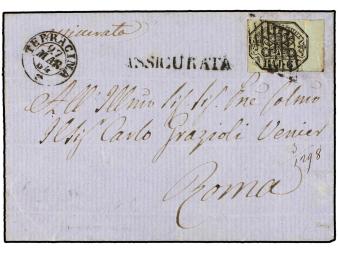 Assicurata
TERRACINA
07
MAG
64
ASSICURATA
All' Illmo Sig. Sig. Pne Colmo
Il Sig. Carlo Grazioli Venier
1298
Roma